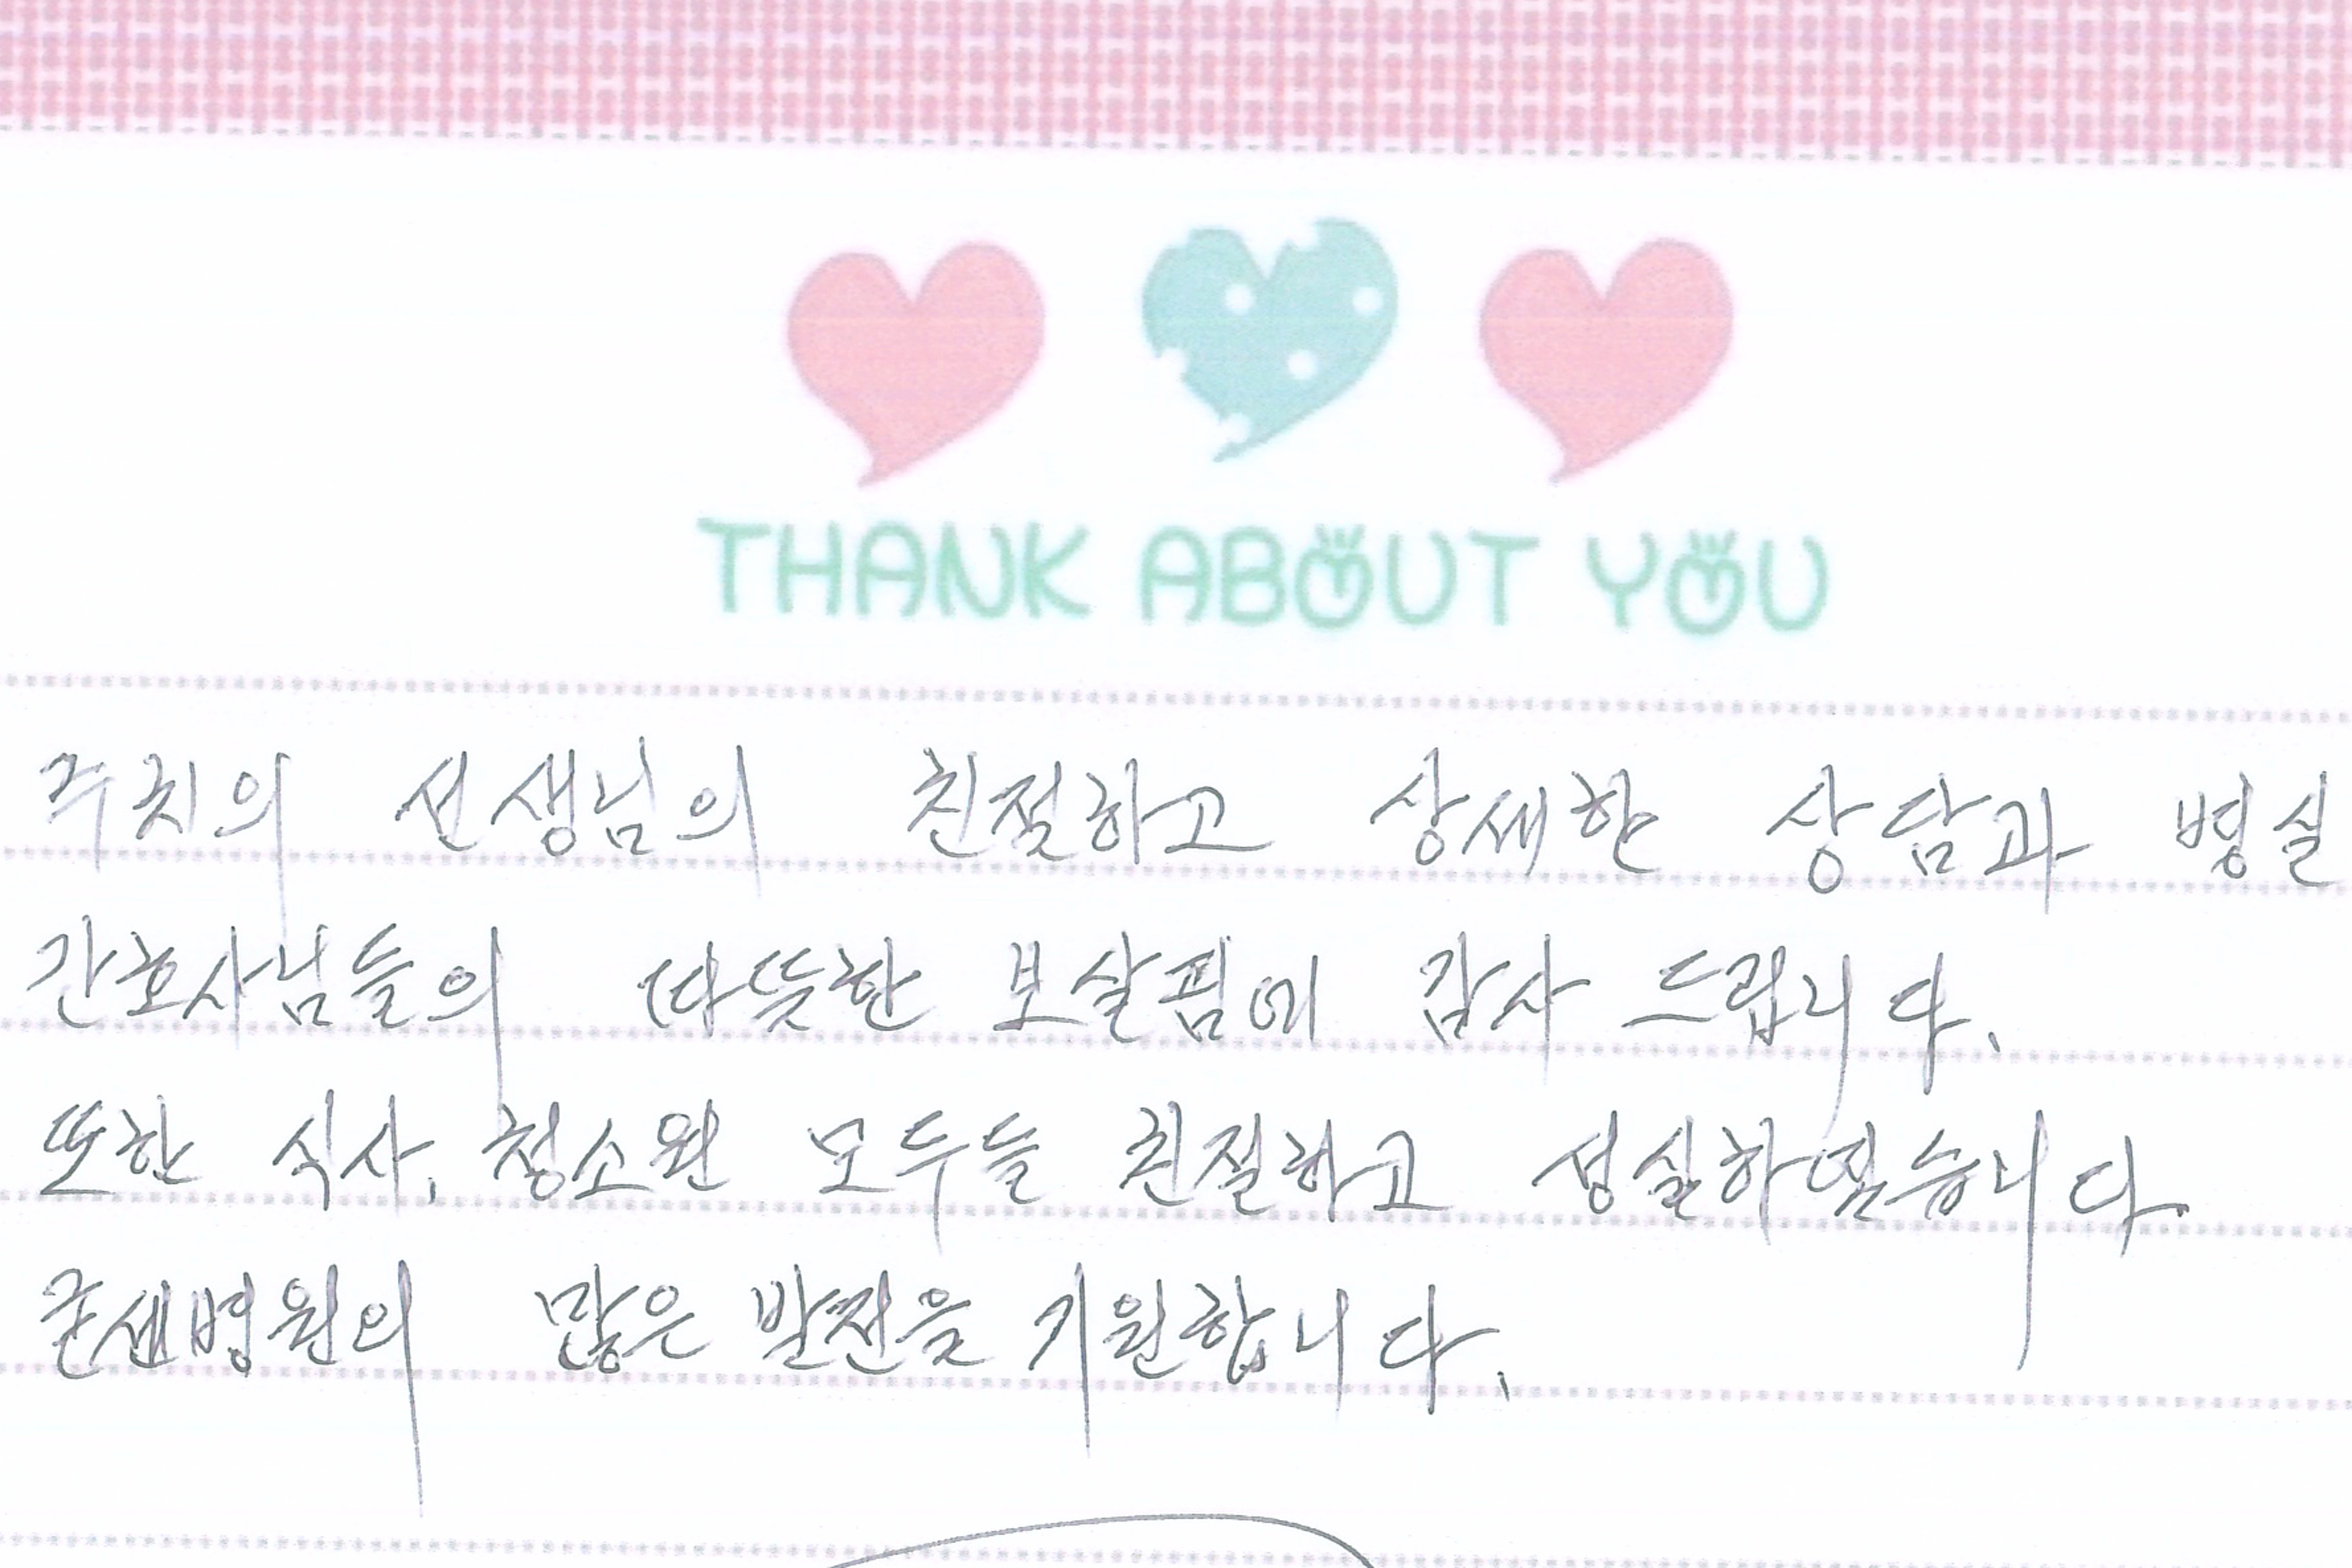 THANK ABOUT YOU
주치의 선생님의 친절하고 상세한 상담과 병실
간호사님들의 따뜻한 보살핌에 감사 드립니다.
또한 식사, 청소원 모두들 친절하고 성실하였습니다.
굳센병원의 많은 발전을 기원합니다.